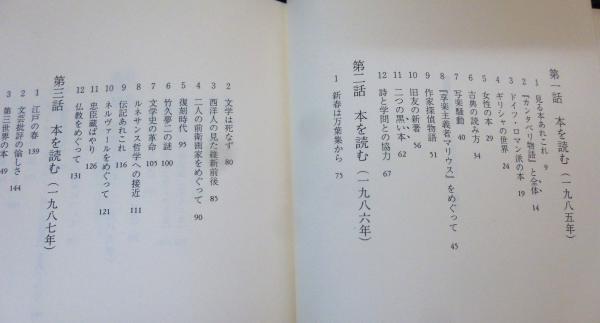 第一話 本を読む(一九八五年)
1 見る本あれこれ 9
2 『カンタベリ物語』と全体 14
3 ドイツ・ロマン派の本 19
4 ギリシャの世界 24
5 女性の本 29
6 古典の読み方 34
7 写楽騒動 40
8 『享楽主義者マリウス』をめぐって 45
9 作家探偵物語 51
10 旧友の新著 56
11 二つの黒い本 62
12 詩と学問との協力 67
第二話 本を読む(一九八六年)
1 新春は万葉集から 75
2 文学は死なず 80
3 西洋人の見た維新前後 85
4 二人の前衛画家をめぐって 90
5 復刻時代 95
6 竹久夢二の謎 100
7 文学史の革命 105
8 ルネサンス哲学への接近 111
9 伝記あれこれ 116
10 ネルヴァールをめぐって 121
11 忠臣蔵ばやり 126
12 仏教をめぐって 131
第三話 本を読む(一九八七年)
1 江戸の春 139
2 文芸批評の愉しさ 144
3 第三世界の本 49